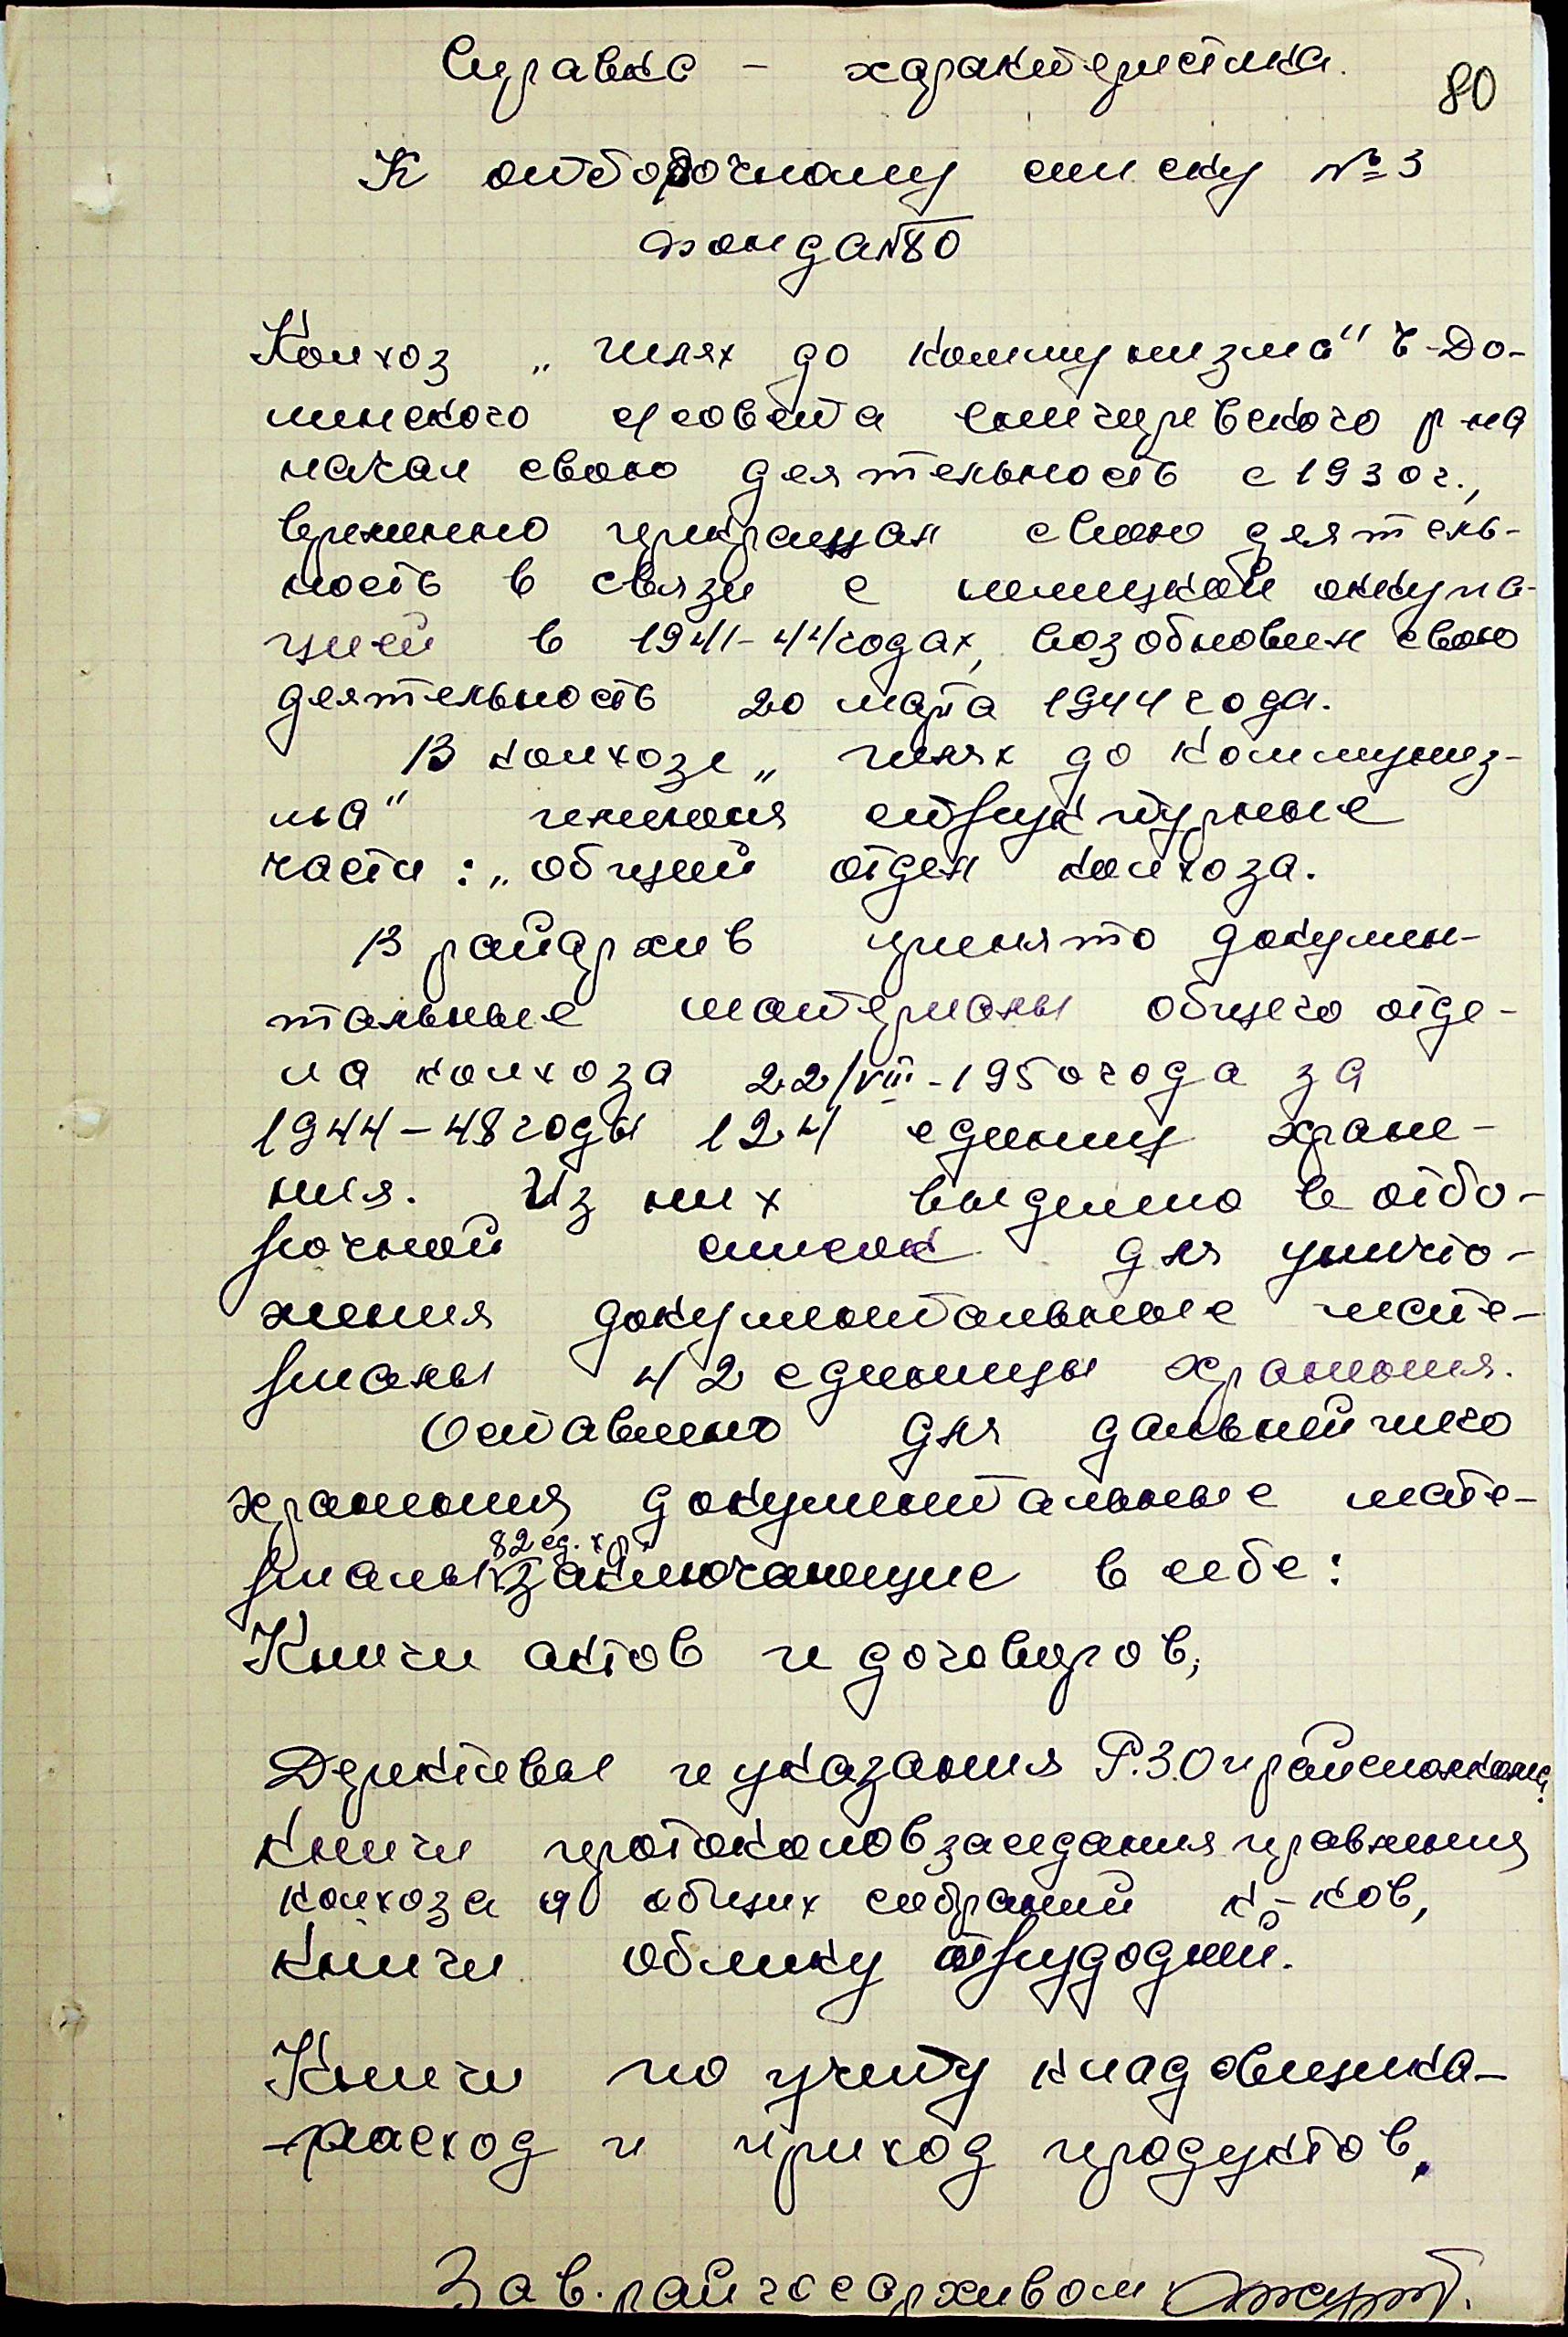 Справка - характеристика.
80
К отборочному списку №3
фонда №80
Колхоз „шлях до коммунизма" Ч-До-
линского с/совета Снигиревского р-на
начал свою деятельность с 1930 г.,
временно прикращал свою деятель-
ность в связи с немецкой оккупа-
цией в 1941-44 годах, возобновил свою
деятельность 20 марта 1944 года.
В колхозе „шлях до коммуниз-
ма" имелися структурные
части: „общий отдел колхоза.
В райархив принято докумен-
тальные материалы общего отде-
ла колхоза 22/VIII-1950 года за
1944-48 годы 124 единиц хране-
ния. Из них выделено в отбо-
рочной список для уничто-
жения документальные мате-
риалы 42 единицы хранения.
Оставлено для дальнейшего
хранения документальные мате-
82 ед. хр.
риалы заключающие в себе:
Книги актов и договоров,
Дериктивы и указания Р.З.О и райисполкома,
книги протоколов заседания правления
колхоза и общих собраний к-ков,
книги облику трудодней.
Книги по учету кладовщика-
-расход и приход продуктов.
Зав. райгосархивом